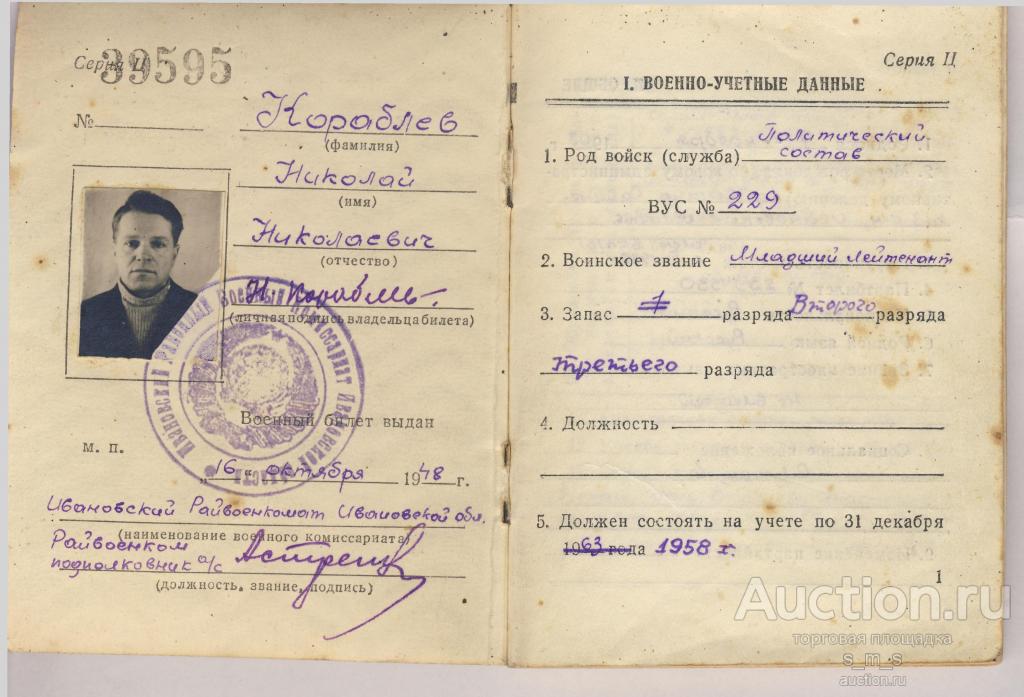 Серия Ц
39595
№
Кораблев
(фамилия)
Николай
(имя)
Николаевич
(отчество)
Н. Корабль-
(личная подпись владельца билета)
Ивановский районный военный комиссариат Ивановской области
Военный билет выдан
м. п.
„16" октября 1948 г.
Ивановский Райвоенкомат Ивановской обл.
(наименование военного комиссариата)
Райвоенком
подполковник а/с
(должность, звание, подпись)
Серия Ц
I. ВОЕННО-УЧЕТНЫЕ ДАННЫЕ
Политический
1. Род войск (служба) состав
ВУС № 229
2. Воинское звание Младший лейтенант
3. Запас 1 разряда Второго разряда
третьего разряда
4. Должность
5. Должен состоять на учете по 31 декабря
1963 года 1958 г.
1
Auction.ru
торговая площадка
s_m_s
auction.ru